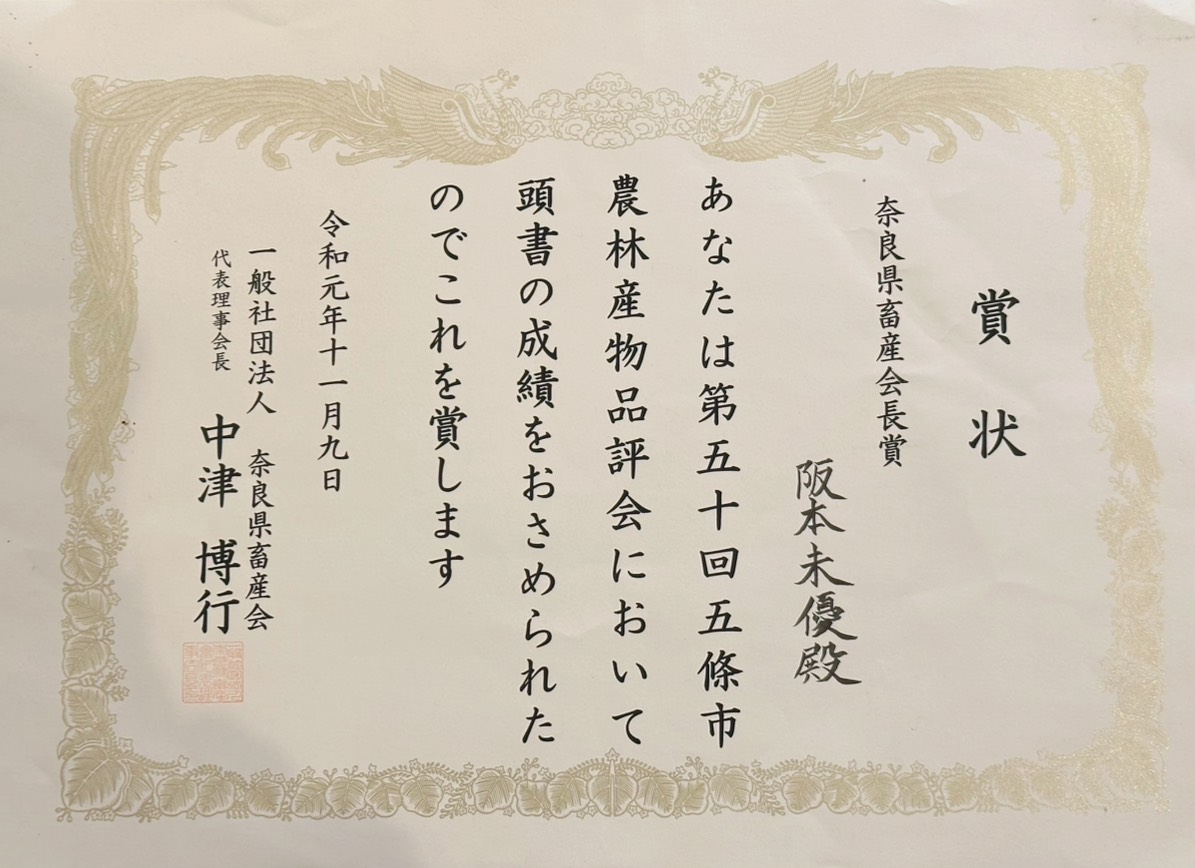 賞状
奈良県畜産会長賞
阪本未優殿
あなたは第五十回五條市
農林産物品評会において
頭書の成績をおさめられた
のでこれを賞します
令和元年十一月九日
一般社団法人 奈良県畜産会
代表理事会長 中津 博行